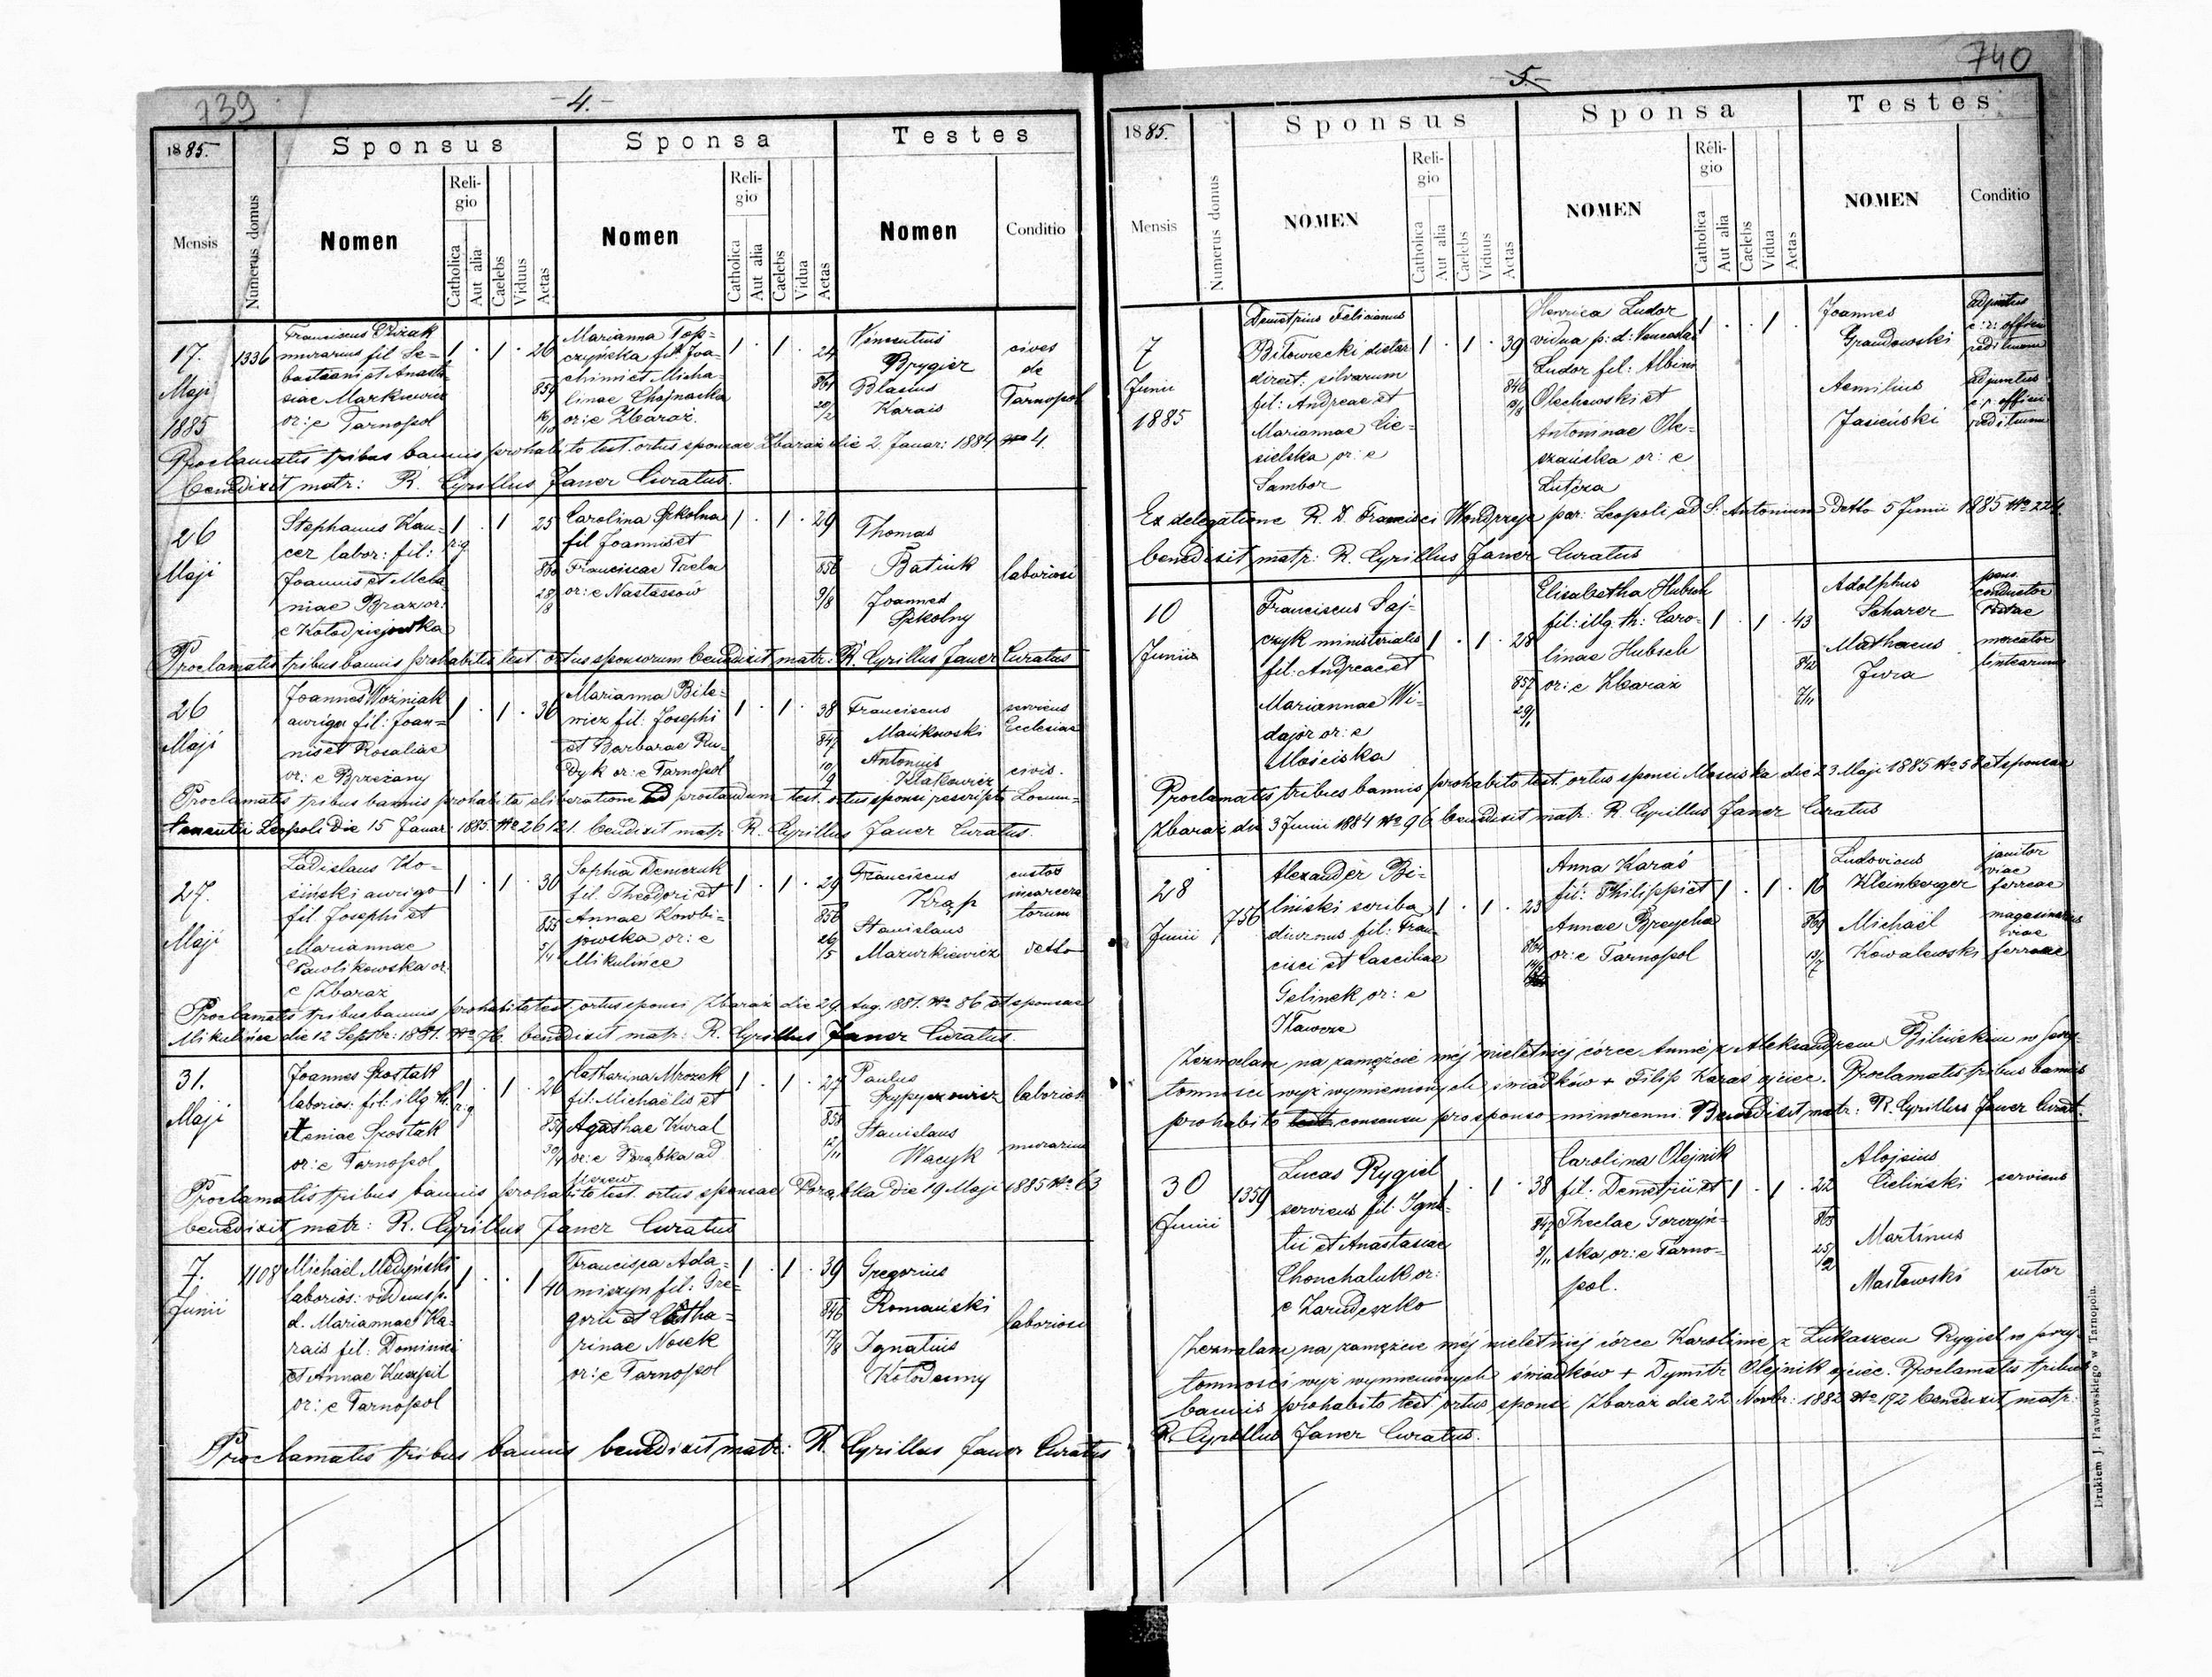 739
-4.-
1885.
Sponsus
Sponsa
Testes
Mensis
Numerus domus
Nomen
Religio
Catholica
Aut alia
Caelebs
Viduus
Aetas
Nomen
Religio
Catholica
Aut alia
Caelebs
Vidua
Aetas
Nomen
Conditio
17.
Maji
1885
1336
Franciscus
murarius fil Se=
bastiani et Anasta
siae Markiewicz
or: e Tarnopol
1 . 1 . 26
859
Marianna Top=
czyńska fil Joa=
chimi et Micha=
linae Chojnacka
or: e Zbaraż.
1 . 1 . 24
861
20/2
Vincentius
Brygier
Blasius
Karais
cives
de
Tarnopol
Proclamatis tribus bannis prohabito test. ortus sponsae Zbaraż die 2 Januar: 1884 No 4.
benedixit matr: R. Cyrillus Janer Curatus.
26
Maji
Stephanus Kau=
cer labor: fil:
Joannis et Mela
niae Braz or:
e Kołodziejowka
1 . 1 25
r: g
860
28/8
Carolina Szkolna
fil Joannis et
Franciscae Trela
or: e Nastassów
1 . 1 . 29
856
9/8
Thomas
Batiuk
Joannes
Szkolny
laboriosi
Proclamatis tribus bannis prohabitis test. ortus sponsorum benedixit matr: R. Cyrillus Janer Curatus
26
Maji
Joannes Woźniak
auriga fil: Joan=
nis et Rosaliae
or: e Brzeżany
1 . 1 . 36
Marianna Bile=
wicz fil: Josephi
et Barbarae Ru=
dyk or: e Tarnopol
1 . 1 . 38
847
10/9
Franciscus
Mańkowski
Antonius
Kłakowicz
servicus
Ecclesiae
civis.
Proclamatis tribus bannis prohabita deliberatione ad prostandum test. ortus sponsi rescripto Locum=
tenentii Leopoli die 15 Januar: 1885 No 26121. benedixit matr: R. Cyrillus Janer Curatus.
27.
Maji
Ladislaus Ko=
siński auriga
fil Josephi et
Mariannae
Pawlikowska or.
e Zbaraż
1 . 1 . 30
855
5/4
Sophia Demczuk
fil. Theodori et
Annae Kowbi=
jowska or: e
Mikulińce
1 . 1 . 29
856
26/5
Franciscus
Krąp
Stanislaus
Mazurkiewicz
custos
incarcera
torum
detto
Proclamatis tribus bannis prohabito test. ortus sponsi Zbaraż die 29. Aug. 1881. No 86 et sponsae
Mikulińce die 12 Septbr: 1881. No 76. benedixit matr: R. Cyrillus Janer Curatus.
31.
Maji
Joannes Szostak
laborios: fil: illg th.
Xeniae Szostak
or: e Tarnopol
1 . 1 . 26
r: g
859
30/4
Catharina Mrozek
fil: Michaëlis et
Agathae Kural
or: e Porąbka ad
1 . 1 . 27
858
12/11
Paulus
Stanislaus
Wacyk
laborios
murarius
Proclamatis tribus bannis prohabito test. ortus sponsae Porąbka die 19 Maji 1885 No 63
benedixit matr: R. Cyrillus Janer Curatus
7.
Junii
1108
Michaël Medyński
laborios: viduus p.
d. Mariannae Ka=
rais fil: Dominici
et Annae Kuszpil
or: e Tarnopol
1 . . 1 40
Francisca Ada=
miszyn fil: Gre=
gorii et Catha=
rinae Nosek
or: e Tarnopol
1 . 1 . 39
846
17/8
Gregorius
Romański
Ignatius
Kołodenny
laboriosi
Proclamatis tribus bannis benedixit matr: R. Cyrillus Janer Curatus
740
-5.-
1885.
Sponsus
Sponsa
Testes
Mensis
Numerus domus
NOMEN
Religio
Catholica
Aut alia
Caelebs
Viduus
Aetas
NOMEN
Réligio
Catholica
Aut alia
Caelebs
Vidua
Aetas
NOMEN
Conditio
7
Junii
1885
Demetrius Felicianus
Biłowiecki
direct: silvarum
fil: Andreae et
Mariannae Cie=
sielska or: e
Sambor
1 . 1 . 39
846
Henrica Ludor
vidua p: d: Venceslai
Ludor fil: Albini
Olechowski et
Antoninae Ole=
szańska or: e
1 . . 1 .
Joannes
Grandowski
Aemilius
Jasieński
adjunctus
c: r: officii
redituum
adjunctus
c: r: officii
redituum
Ex delegatione R. D. Francisci Wendrzeje par: Leopoli ad S: Antonium detto 5 Junii 1885 No 224.
benedixit matr: R. Cyrillus Janer Curatus
10
Junii
Franciscus Saj=
czyk ministerialis
fil: Andreae et
Mariannae Wi=
dajór or: e
Mościska
1 . 1 . 28
857
29/1
Elisabetha Hubsch
fil: illg. th: Caro=
linae Hubsch
or: e Zbaraż
1 . 1 . 43
842
7/11
Adolphus
Scharer
Mathaeus
Jura
conductor
mercator
lintearum
Proclamatis tribus bannis prohabito test. ortus sponsi Mościska die 23 Maji 1885 No 58 et sponsae
Zbaraż die 3 Junii 1884 No 96 benedixit matr: R. Cyrillus Janer Curatus
28
Junii
756
Alexander Bi=
liński scriba
diurnus fil: Fran
cisci et Caeciliae
Gelinek or: e
Iławcze
1 . 1 . 23
Anna Karaś
fil: Philippi et
Annae Breycha
or: e Tarnopol
1 . 1 . 16
869
13/7
Ludovicus
Kleinberger
Michaël
Kowalewski
janitor
viae
ferreae
magasinarius
viae
ferreae
Zezwalam na zamęźcie mej nieletniej córce Annie z Aleksandrem Bilińskim w przy=
tomności wyż wymienionych świadków + Filip Karaś ojciec. Proclamatis tribus bannis
prohabito consensu pro sponso minorenni. Benedixit matr: R. Cyrillus Janer Curat.
30
Junii
1359
Lucas Rygiel
servicus fil: Igna=
tii et Anastasiae
Chonchaluk or:
e Zarudeczko
1 . 1 . 38
847
9/11
Carolina Olejnik
fil: Demetrii et
Theclae Gorczyń=
ska or: e Tarno=
pol.
1 . 1 . 22
863
Alojsius
Cieliński
Martinus
Masłowski
servicus
sutor
Zezwalam na zamęźcie mej nieletniej córce Karolinie z Łukaszem Rygiel w przy=
tomności wyż wymienionych świadków + Dymitr Olejnik ojciec. Proclamatis tribus
bannis prohabito test. ortus sponsi Zbaraż die 22 Novbr: 1882 No 172 benedixit matr:
R. Cyrillus Janer Curatus.
Drukiem J. Pawłowskiego w Tarnopolu.